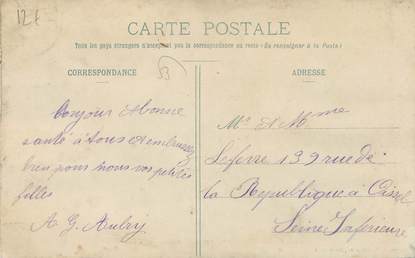 12 f
CARTE POSTALE
Tous les pays étrangers n'acceptent pas la correspondance au recto (Se renseigner à la Poste)
CORRESPONDANCE
53
ADRESSE
Bonjour & bonne
santé à tous & embrassez
bien pour nous vos petites
filles
A G. Aubry
Mr & Mme
Lefevre 139 rue de
la République à
Seine Inferieure